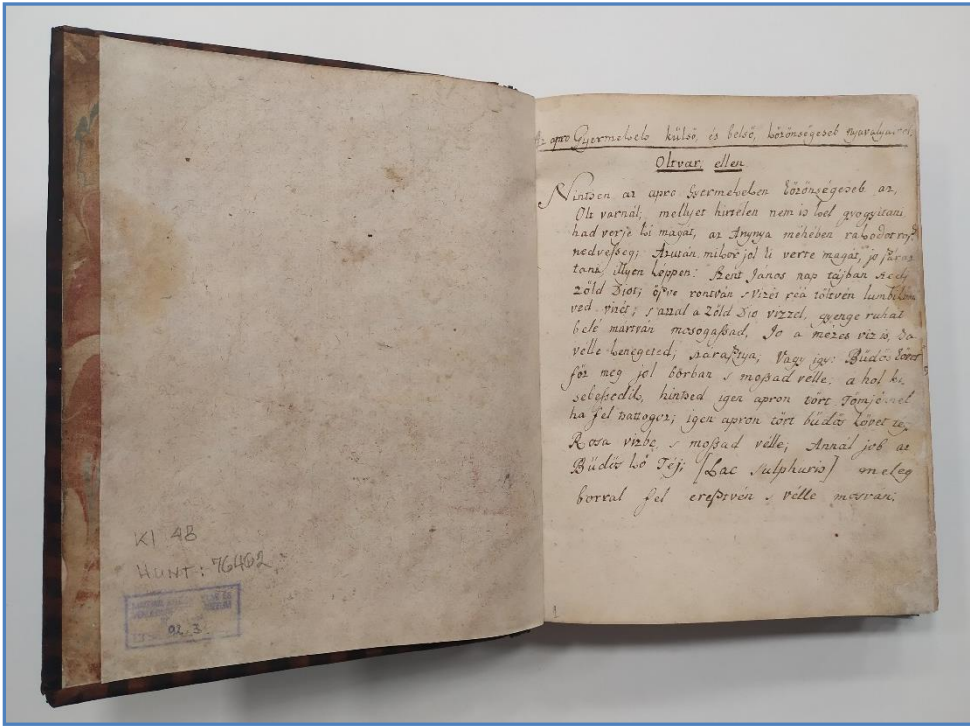 KI 48
HUNT: 76402
92. 3.
Az apro Gyermekek külsö, és belsö, közönségeseb nyavalyai
Oltvar, ellen
Nintsen az apro Gyermekeken közönségeseb az,
Olt varnál, mellyet hirtelen nem is kel gyogyitani
had verje ki magát, az Annya méhében rakodot
nedveſség; Azután, mikor jol ki verte magát, jo
illyen képpen: Szent Janos nap tájban szedj
Zöld Diot, öſve rontván s vizet réá töltvén
ved vizét; s azzal a Zöld Dio vizzel, gyenge ruhát
belé mártván mosogaſsad, Jo a mézes viz is, ha
velle kenegeted; szaraſztya; Vagy igy: Büdös követ
föz meg jol borban s moſsad vélle; a hol ki
sebeſsedik, hintsed igen apron tört Tömjénnel
ha fel igen apron tört büdös követ
Rosa vizbe, s moſsad vélle; Annál job az
Büdös kö Téj; [Lac Sulphuris] meleg
borral fel ereſztvén s vélle mosván;
1